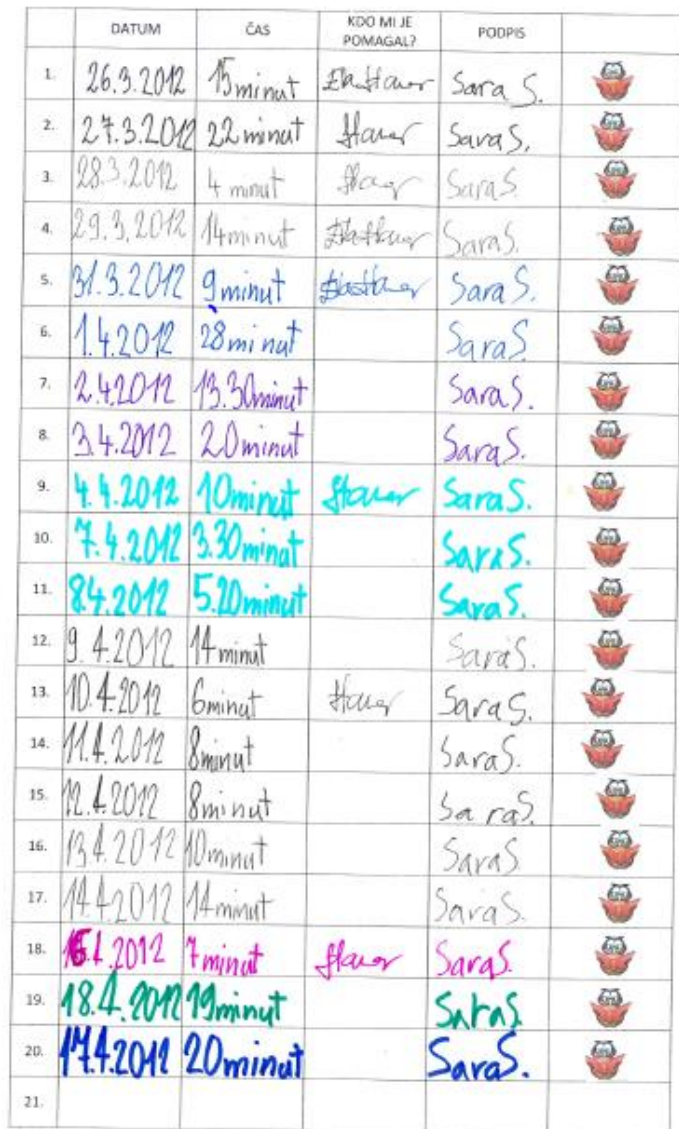 DATUM ČAS KDO MI JE POMAGAL? PODPIS
1. 26.3.2012 15minut Sara S.
2. 27.3.2012 22minut Sara S.
3. 28.3.2012 4 minut Sara S.
4. 29.3.2012 14minut Sara S.
5. 31.3.2012 9minut Sara S.
6. 1.4.2012 28minut Sara S.
7. 2.4.2012 13.30minut Sara S.
8. 3.4.2012 20minut Sara S.
9. 4.4.2012 10minut Sara S.
10. 7.4.2012 3.30minut Sara S.
11. 8.4.2012 5.20minut Sara S.
12. 9.4.2012 14minut Sara S.
13. 10.4.2012 6minut Sara S.
14. 11.4.2012 8minut Sara S.
15. 12.4.2012 8minut Sara S.
16. 13.4.2012 10minut Sara S
17. 14.4.2012 14minut Sara S.
18. 4.2012 7minut Sara S.
19. 18.4.2012 19minut Sara S.
20. 17.4.2012 20minut Sara S.
21.